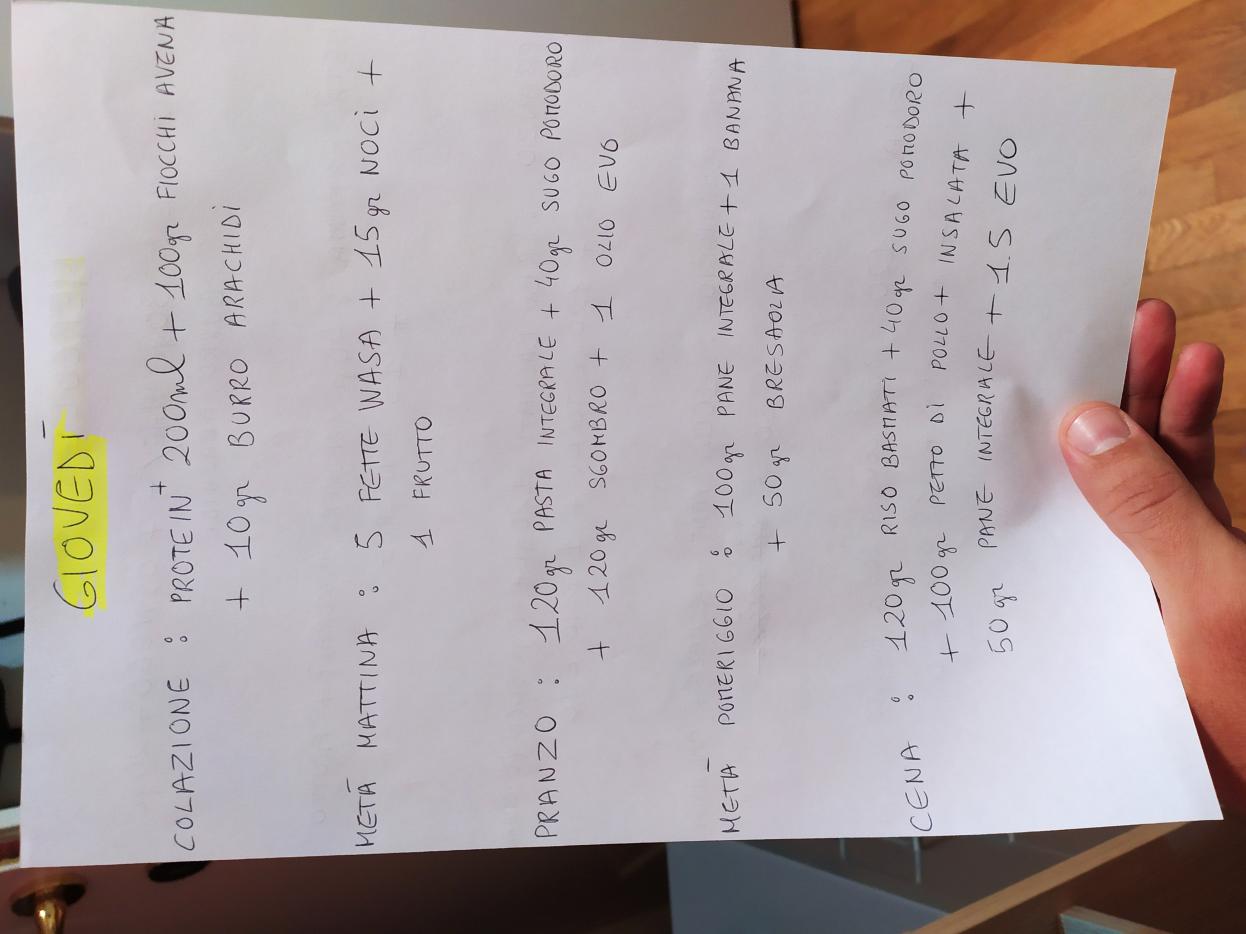 GIOVEDÌ
COLAZIONE : PROTEIN+ 200ml + 100gr FIOCCHI AVENA
+ 10gr BURRO ARACHIDI
METÀ MATTINA : 5 FETTE WASA + 15gr NOCI +
1 FRUTTO
PRANZO : 120gr PASTA INTEGRALE + 40gr SUGO POMODORO
+ 120gr SGOMBRO + 1 OLIO EVO
METÀ POMERIGGIO : 100gr PANE INTEGRALE + 1 BANANA
+ 50gr BRESAOLA
CENA : 120gr RISO BASMATI + 40gr SUGO POMODORO
+ 100gr PETTO DI POLLO + INSALATA +
50gr PANE INTEGRALE + 1.5 EVO